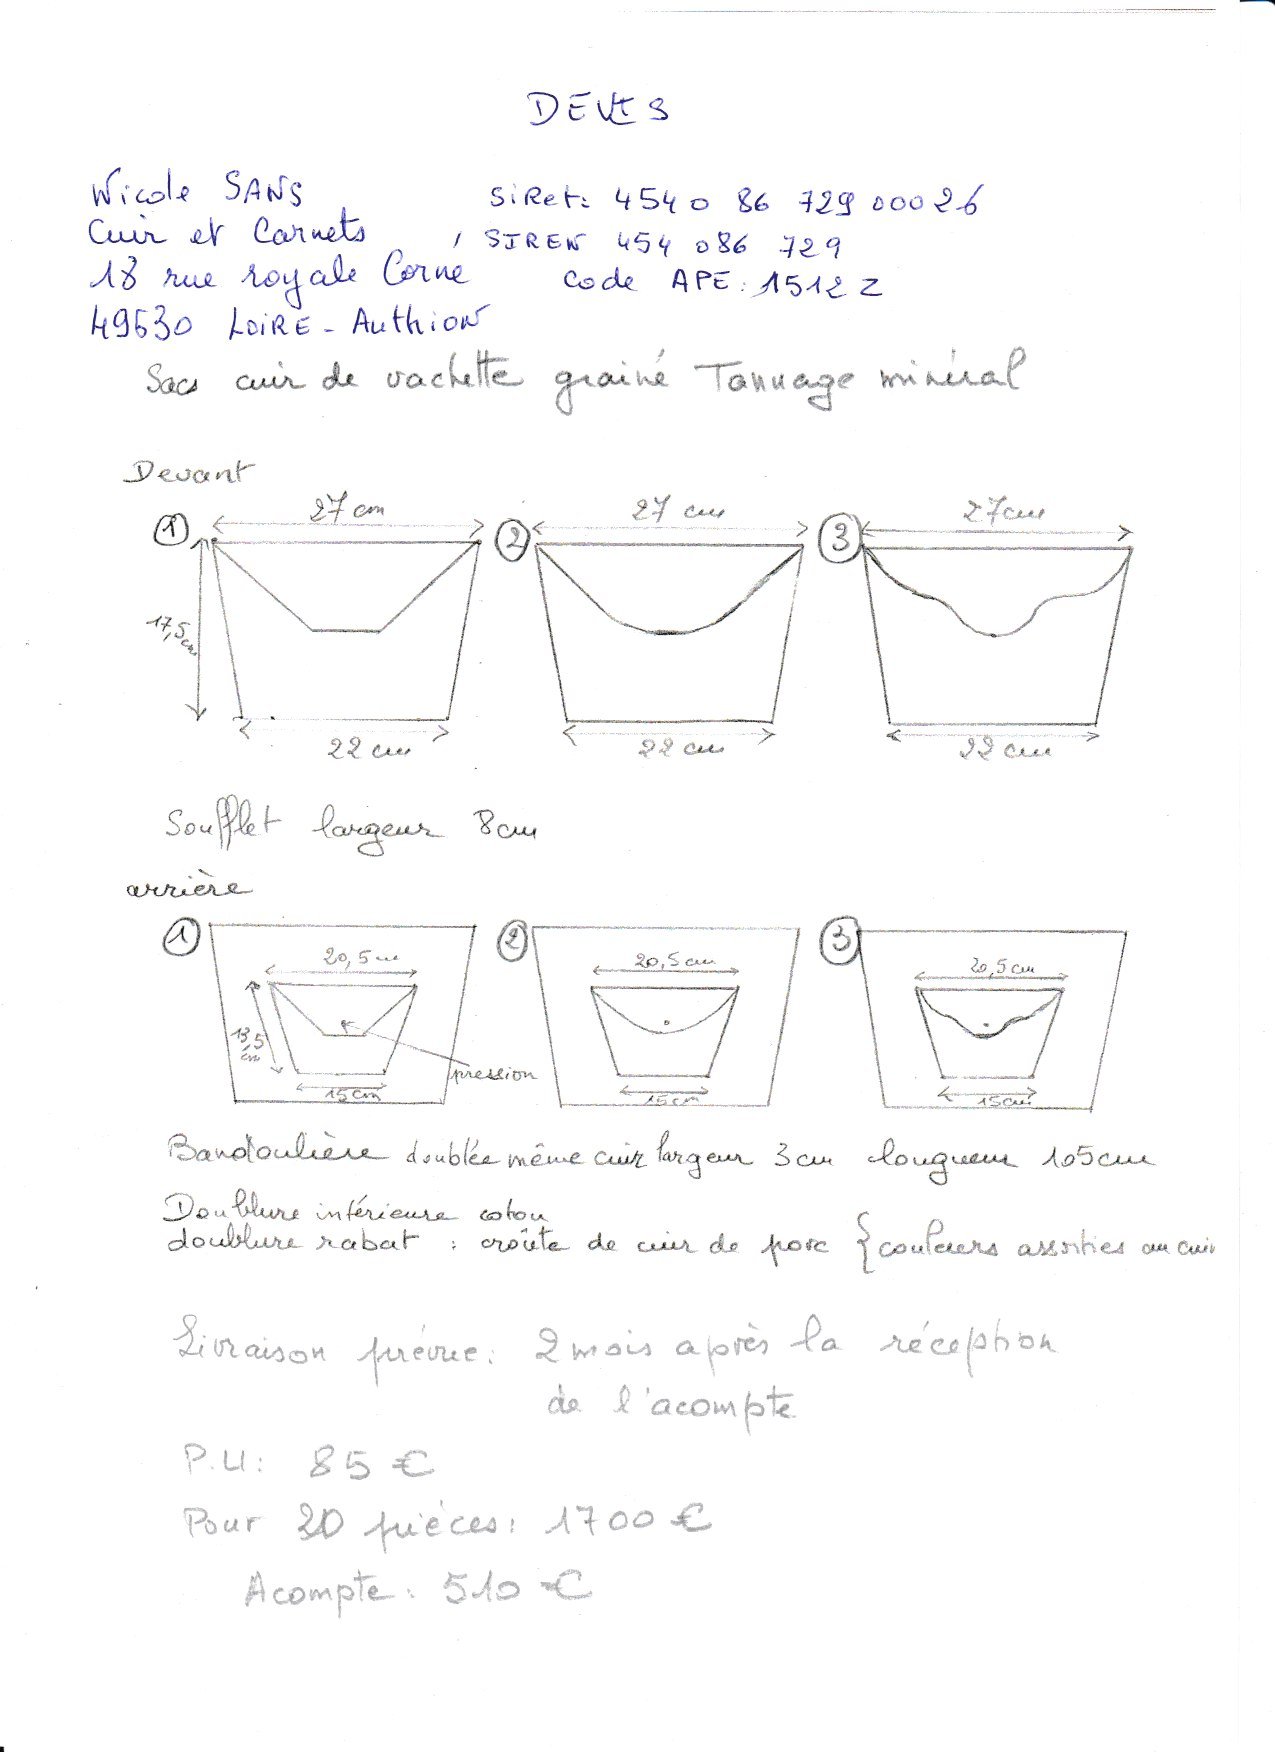 DEVIS
Nicole SANS
SiRet: 454 0 86 729 00026
Cuir et Carnets
SIREN 454 086 729
18 rue royale Corné
Code APE: 1512 Z
49630 LOIRE-Authion
Sacs cuir de vachette grainé Tannage minéral
Devant
① 27 cm ② 27 cm ③ 27 cm
17,5 cm
22 cm 22 cm 22 cm
Soufflet largeur 8cm
arrière
① ② ③
20,5 cm 20,5 cm 20,5 cm
13,5 cm
pression
15 cm 15cm 15cm
Bandoulière doublée même cuir largeur 3cm longueur 105cm
Doublure intérieure coton
doublure rabat : croûte de cuir de porc { couleurs assorties au cuir
Livraison prévue: 2 mois après la réception
de l'acompte
P.U: 85 €
Pour 20 pièces: 1700 €
Acompte: 510 €